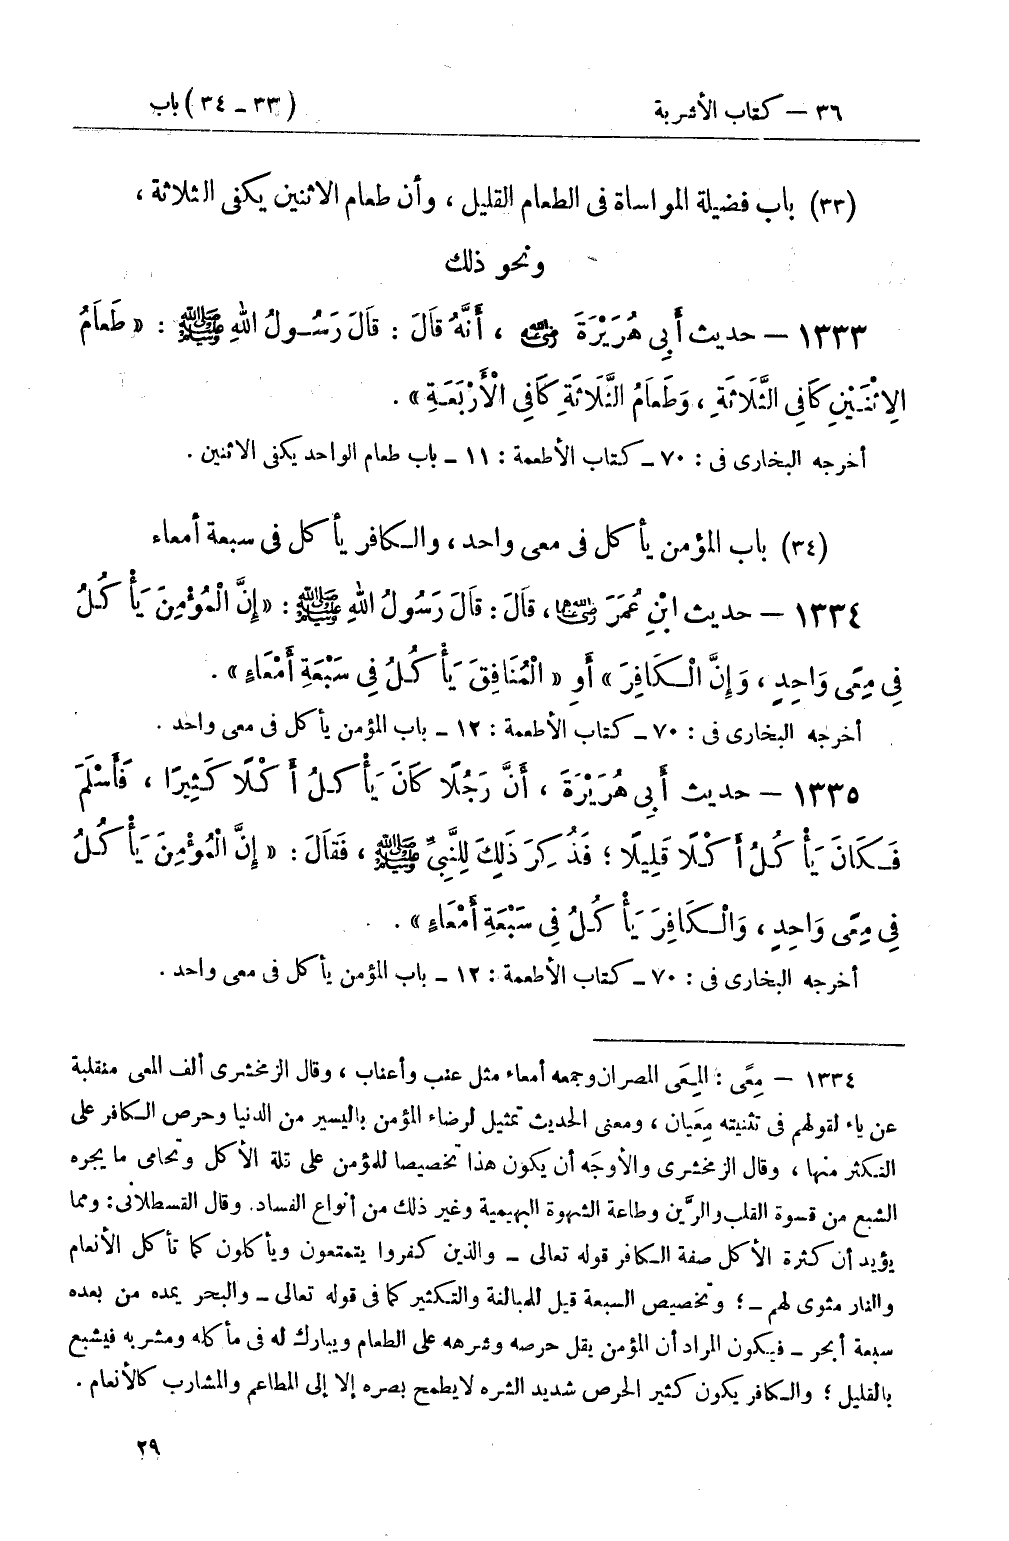 ٣٦ – كتاب الأشربة (٣٣ – ٣٤) باب
(٣٣) باب فضيلة المواساة فى الطعام القليل ، وأن طعام الاثنين يكفى الثلاثة ،
ونحو ذلك
١٣٣٣ – حديث أَبِى هُرَيْرَةَ رضي الله عنه ، أَنَّهُ قَالَ : قَالَ رَسُولُ اللهِ ﷺ : « طَعَامُ
الِاثْنَيْنِ كَافِى الثَّلَاثَةِ ، وَطَعَامُ الثَّلَاثَةِ كَافِى الْأَرْبَعَةِ » .
أخرجه البخارى فى : ٧٠ – كتاب الأطعمة : ١١ – باب طعام الواحد يكفى الاثنين .
(٣٤) باب المؤمن يأكل فى معى واحد ، والكافر يأكل فى سبعة أمعاء
١٣٣٤ – حديث ابْنِ عُمَرَ رضي الله عنهما ، قَالَ : قَالَ رَسُولُ اللهِ ﷺ : « إِنَّ الْمُؤْمِنَ يَأْكُلُ
فِى مِعًى وَاحِدٍ ، وَإِنَّ الْكَافِرَ » أَوِ « الْمُنَافِقَ يَأْكُلُ فِى سَبْعَةِ أَمْعَاءٍ » .
أخرجه البخارى فى : ٧٠ – كتاب الأطعمة : ١٢ – باب المؤمن يأكل فى معى واحد .
١٣٣٥ – حديث أَبِى هُرَيْرَةَ ، أَنَّ رَجُلًا كَانَ يَأْكُلُ أَكْلًا كَثِيرًا ، فَأَسْلَمَ
فَكَانَ يَأْكُلُ أَكْلًا قَلِيلًا ؛ فَذُكِرَ ذَلِكَ لِلنَّبِىِّ ﷺ ، فَقَالَ : « إِنَّ الْمُؤْمِنَ يَأْكُلُ
فِى مِعًى وَاحِدٍ ، وَالْكَافِرَ يَأْكُلُ فِى سَبْعَةِ أَمْعَاءٍ » .
أخرجه البخارى فى : ٧٠ – كتاب الأطعمة : ١٢ – باب المؤمن يأكل فى معى واحد .
١٣٣٤ – مِعًى : المِعَى المصران وجمعه أمعاء مثل عنب وأعناب ، وقال الزمخشرى ألف المعى منقلبة
عن ياء لقولهم فى تثنيته مِعَيان ، ومعنى الحديث تمثيل لرضاء المؤمن باليسير من الدنيا وحرص الكافر على
التكثر منها ، وقال الزمخشرى والأوجَه أن يكون هذا تخصيصا للمؤمن على قلة الأكل وتحامى ما يجره
الشبع من قسوة القلب والرَّين وطاعة الشهوة البهيمية وغير ذلك من أنواع الفساد. وقال القسطلانى: ومما
يؤيد أن كثرة الأكل صفة الكافر قوله تعالى – والذين كفروا يتمتعون ويأكلون كما تأكل الأنعام
والنار مثوى لهم – ؛ وتخصيص السبعة قيل للمبالغة والتكثير كما فى قوله تعالى – والبحر يمده من بعده
سبعة أبحر – فيكون المراد أن المؤمن يقل حرصه وشرهه على الطعام ويبارك له فى مأكله ومشربه فيشبع
بالقليل ؛ والكافر يكون كثير الحرص شديد الشره لا يطمح بصره إلا إلى المطاعم والمشارب كالأنعام .
٢٩